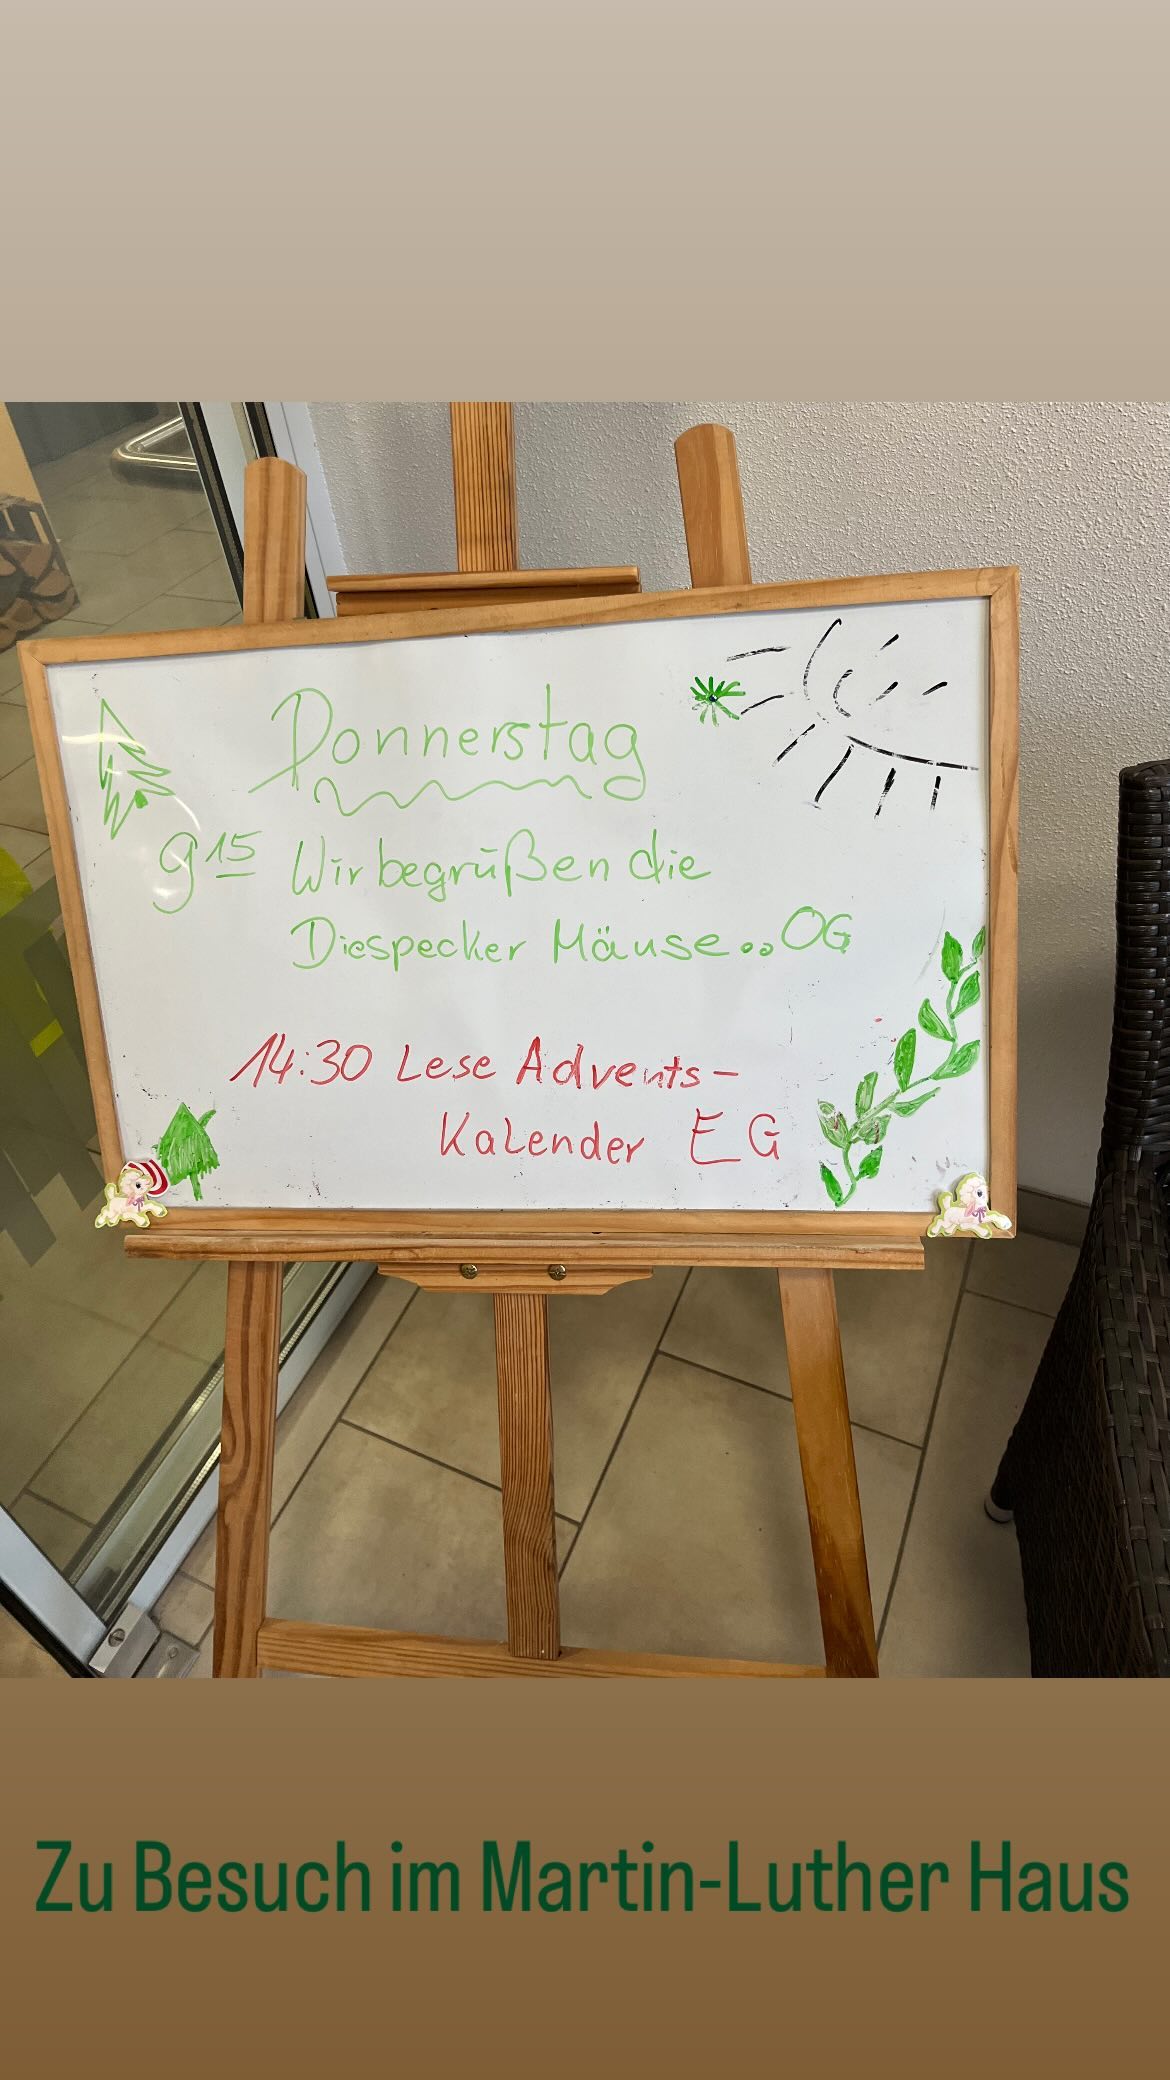 Donnerstag
9 15 Wir begrüßen die
Diespecker Mäuse... OG
14:30 Lese Advents-
Kalender EG
Zu Besuch im Martin-Luther Haus